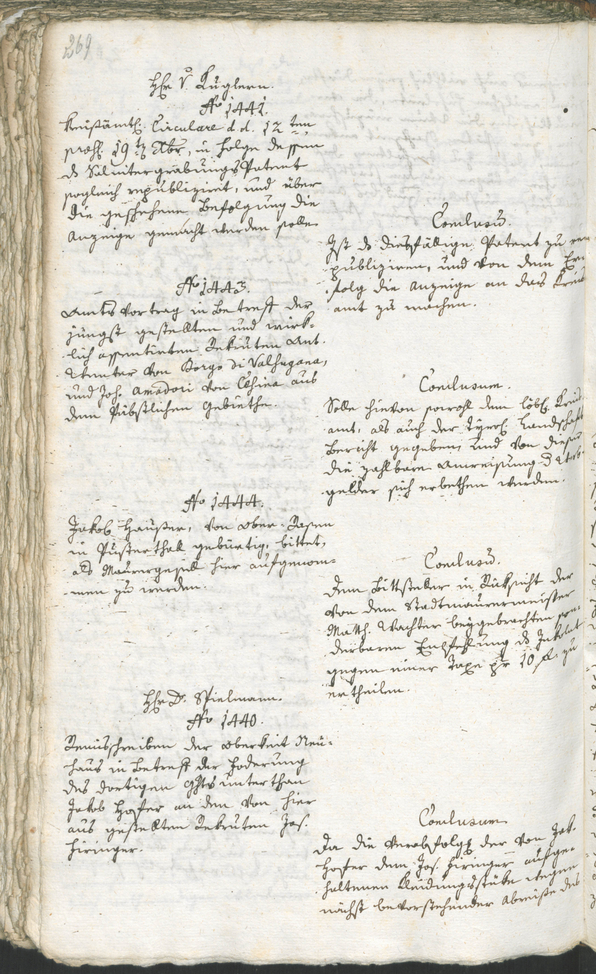 269
Hr. v. Kuglern.
No 1442.
Kreisämtl. Circulare d. d. 12ten
praes. 19t. Xbr, in Folge dessen
ds Saliniter grabungs Patent
sogleich republiziret, und über
die geschehene Befolgung die
Anzeige gemacht werden solle.
Conclusum
Ist ds diesfällige Patent zu re
publiziren, und von dem Er
folg die Anzeige an das Kreis
amt zu machen.
No 1443.
Amts Vortrag in Betreff der
jüngst gestellten und wirk-
lich assentirten Rekruten Ant.
von Borgo di Valsugana,
und Joh. Amadori von Cesina aus
dem Päbstlichen Gebiethe.
Conclusum.
Solle hievon sowohl dem löbl. Kreis
amt, als auch der Tyrol. Landschaft
Bericht gegeben, und von dieser
die zahlbare Anweisung d
gelder sich erbethen werden.
No 1444.
Jakob Hauser, von Ober-Rasen
in Pusterthal gebürtig, bittet,
als Maurergesell hier aufgenom-
men zu werden.
Conclusum.
Dem Bittsteller in Rücksicht der
von dem Stadtmaurermeister
Math. Wachter beygebrachten son
derbaren Empfehlung ds
gegen einer Taxe pr 10 f. zu
ertheilen.
Hr. D. Spielmann.
No 1440.
Remisschreiben der Oberkeit Neu-
haus in Betreff der Foderung
des dortigen Ghtsunterthan
Jakob Hofer an dem von hier
aus gestellten Rekruten Jos.
Hiringer.
Conclusum
Da die Verabfolgg der von Jak.
Hofer dem Jos. Hiringer aufge
haltenen Kleidungsstüke wegen
nächst bevorstehender Abreise des